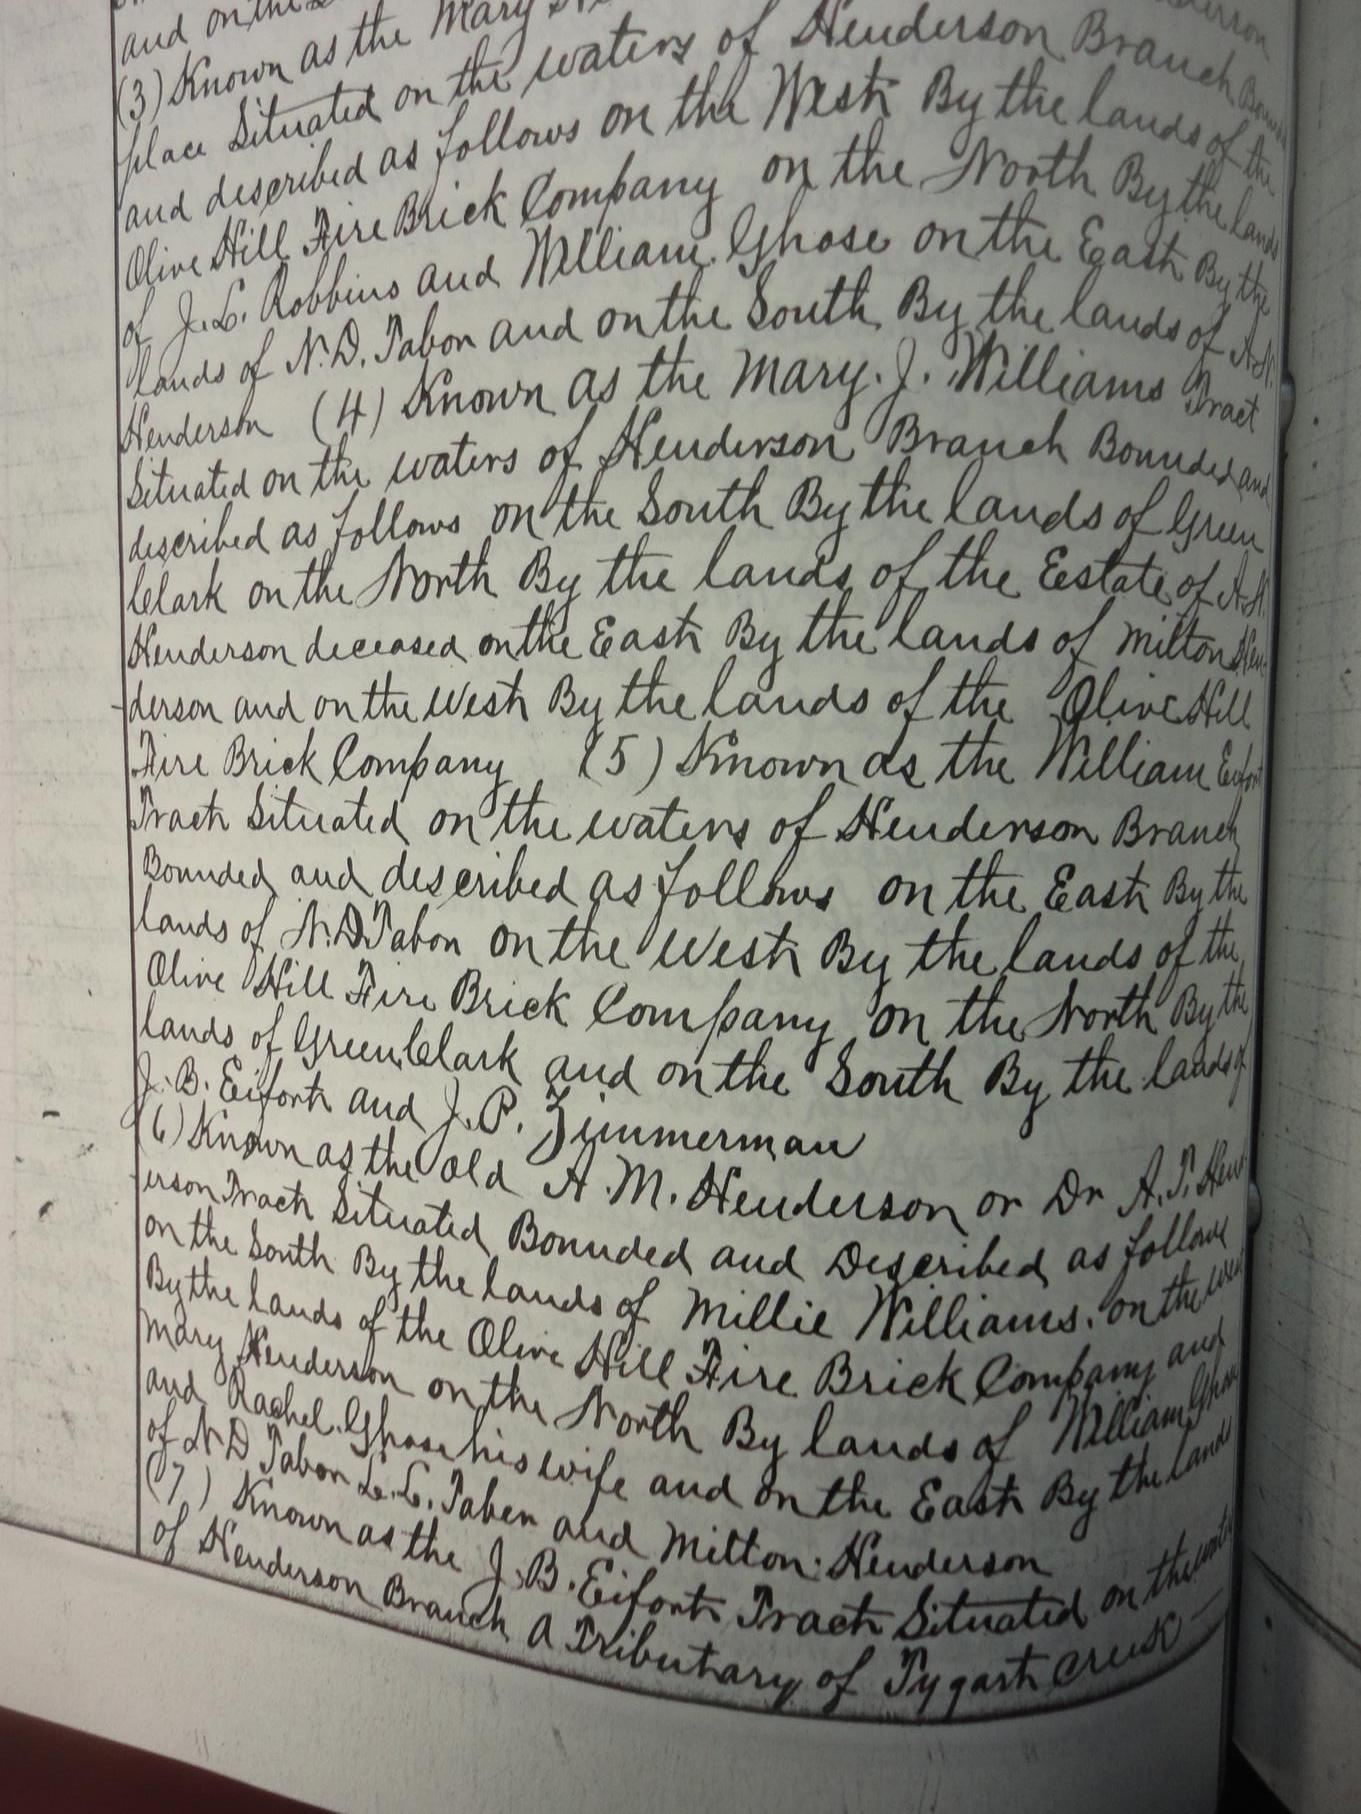 and on the
(3) Known as the Mary
place Situated on the waters of Henderson Branch
and described as follows on the West By the lands of the
Olive Hill Fire Brick Company on the North By the lands
of J.L. Robbins and William Ghose on the East By the
lands of N.D. Tabor and on the South By the lands of A.M.
Henderson (4) Known as the Mary. J. Williams Tract
Situated on the waters of Henderson Branch Bounded and
described as follows on the South By the lands of Green
Clark on the North By the lands of the Eestate of A.M.
Henderson deceased on the East By the lands of Milton Hen-
derson and on the West By the lands of the Olive Hill
Fire Brick Company (5) Known as the William Eifort
Tract Situated on the waters of Henderson Branch
Bounded and described as follows on the East By the
lands of N.D Tabor on the West By the lands of the
Olive Hill Fire Brick Company on the North By the
lands of Green Clark and on the South By the lands of
J. B. Eifort and J. P. Zimmerman
(6) Known as the old A. M. Henderson or Dr A.T. Hend
erson Tract Situated Bounded and Described as follows
on the South By the lands of Millie Williams. on the West
By the lands of the Olive Hill Fire Brick Company and
Mary Henderson on the North By lands of William Ghose
and Rachel Ghose his wife and on the East By the lands
of N D Tabor L. L. Taber and Milton Henderson
(7) Known as the J. B. Eifort Tract Situated on the waters
of Henderson Branch a Tributary of Tygart Creek